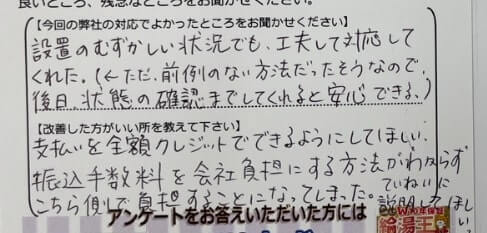 良いところ、残念なところをお聞かせください。
【今回の弊社の対応でよかったところをお聞かせください】
設置のむずかしい状況でも、工夫して対応して
くれた。(←ただ、前例のない方法だったそうなので、
後日、状態の確認までしてくれると安心できる。)
【改善した方がいい所を教えて下さい】
支払いを全額クレジットでできるようにしてほしい。
振込手数料を会社負担にする方法がわからず
こちら側で負担することになってしまった。ていねいに
説明してほしい。
アンケートをお答えいただいた方には
W10年保証
給湯王